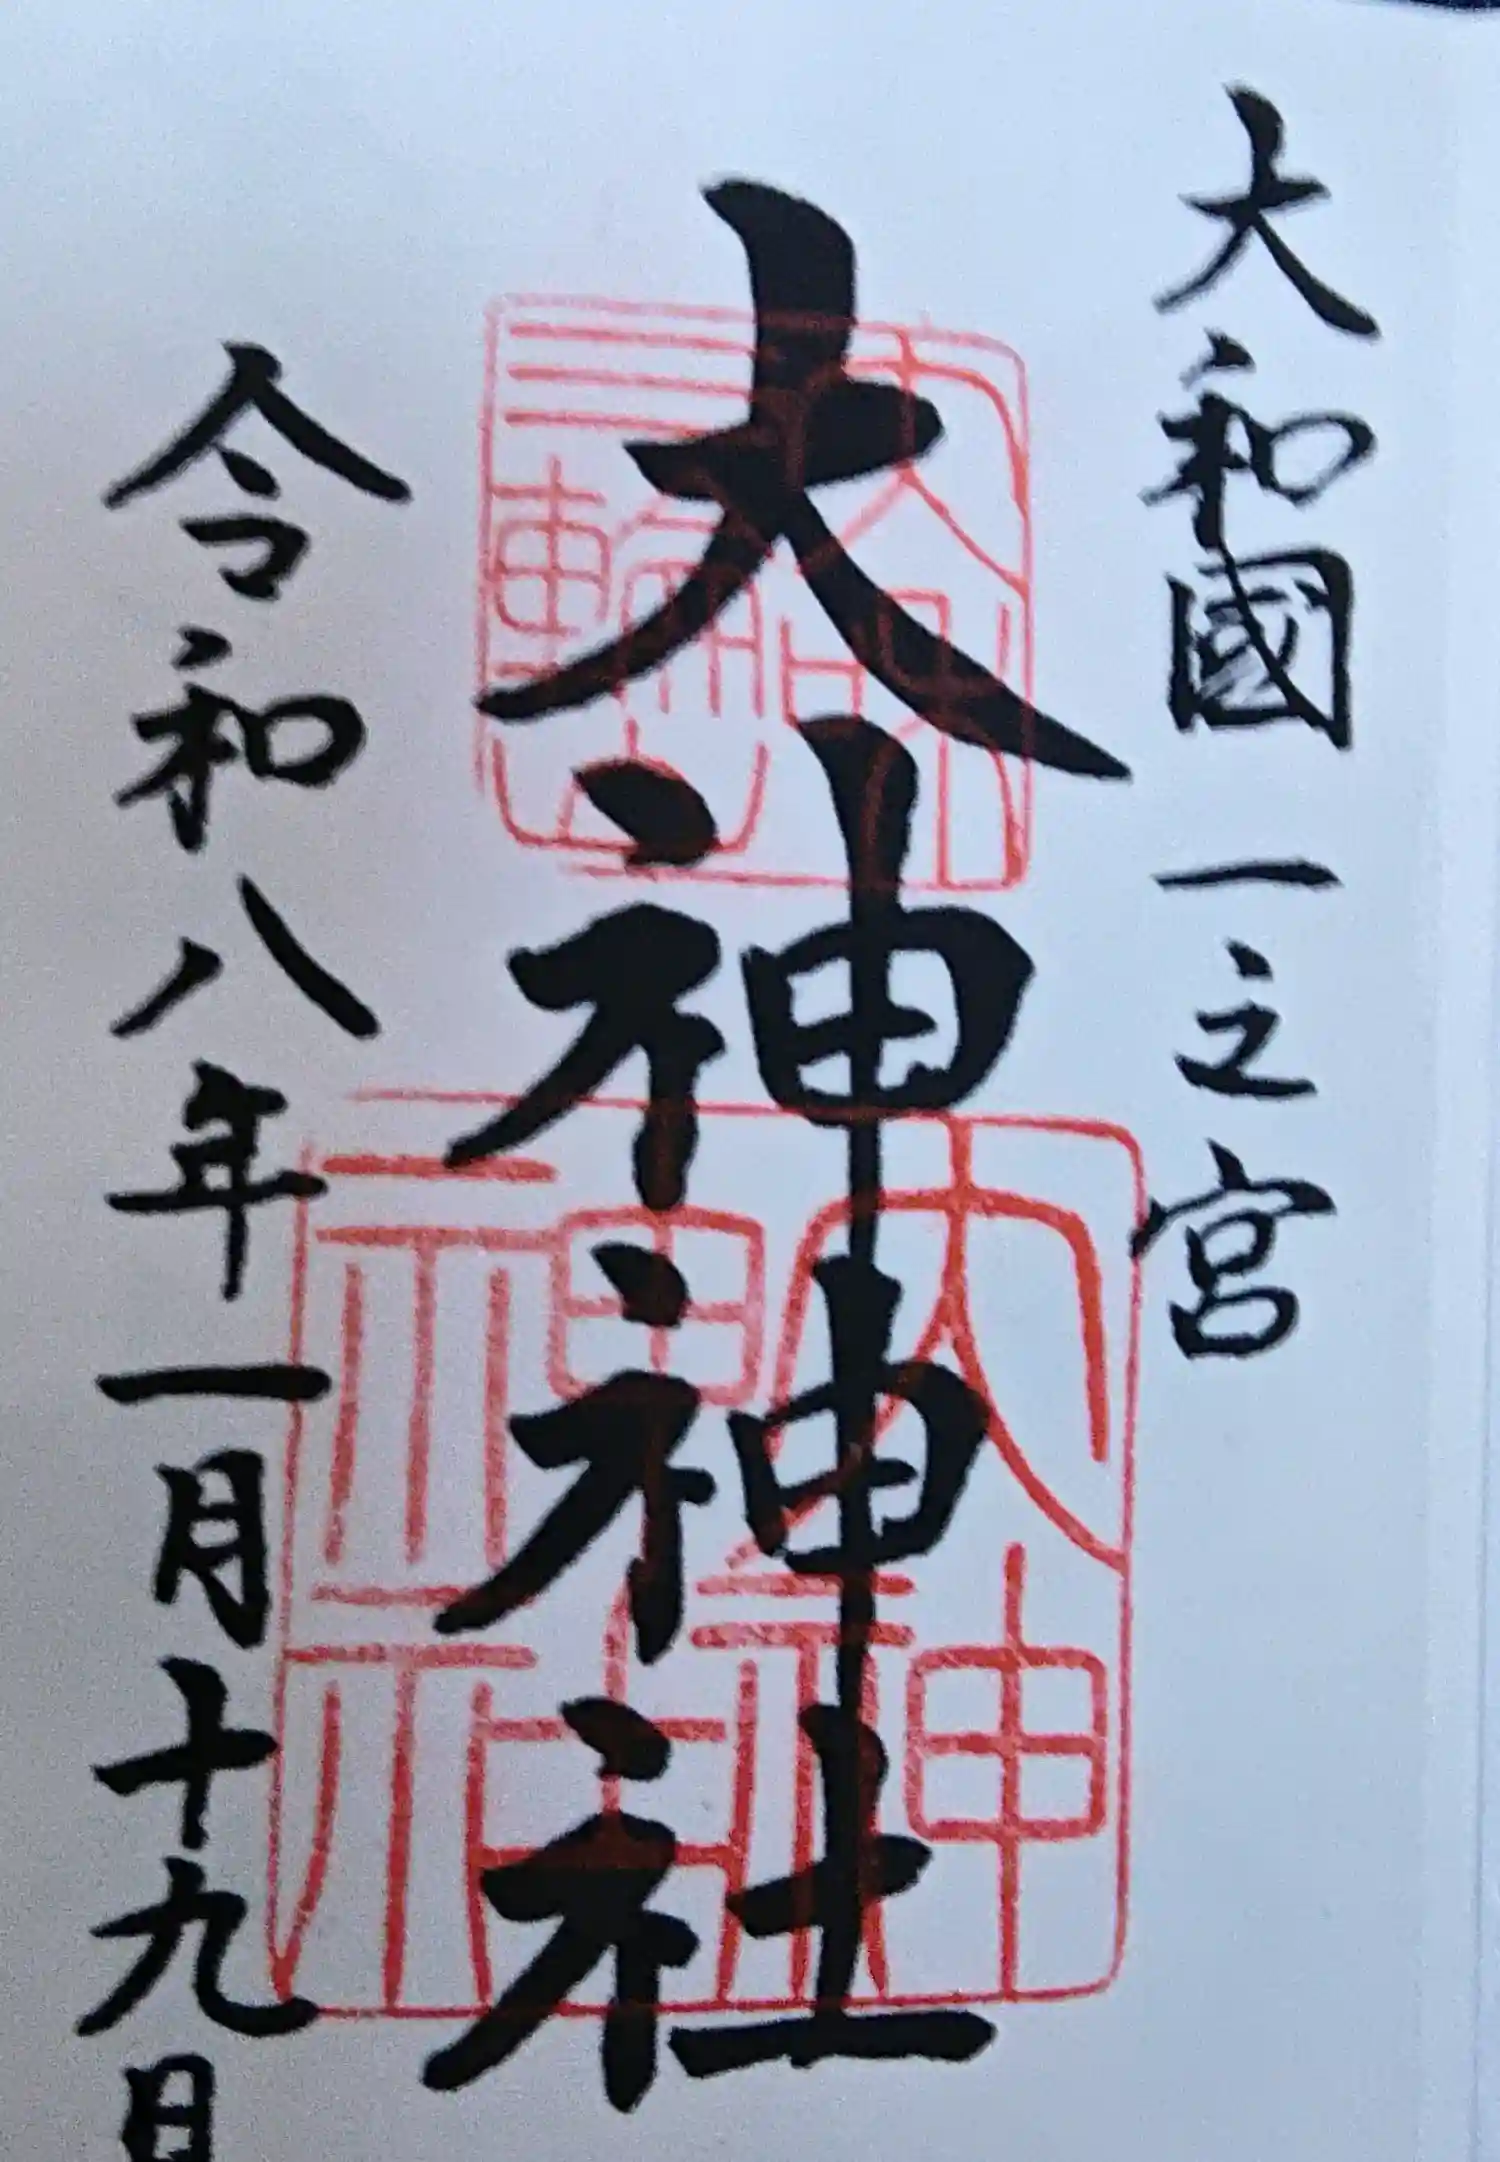 大和國一之宮
大神神社
令和八年一月十九日
大和
三輪山
大神
神社